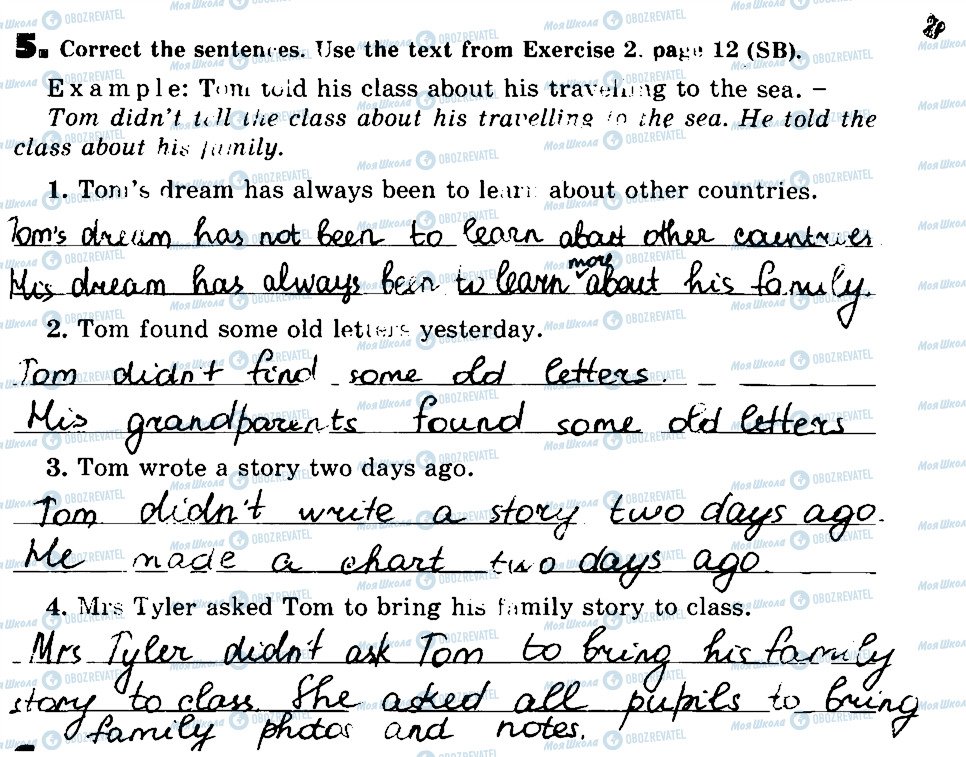 5. Correct the sentences. Use the text from Exercise 2, page 12 (SB).
Example: Tom told his class about his travelling to the sea. –
Tom didn't tell the class about his travelling to the sea. He told the
class about his family.
1. Tom's dream has always been to learn about other countries.
Tom's dream has not been to learn about other countries
His dream has always been to learn more about his family.
2. Tom found some old letters yesterday.
Tom didn't find some old letters.
His grandparents found some old letters
3. Tom wrote a story two days ago.
Tom didn't write a story two days ago.
He made a chart two days ago.
4. Mrs Tyler asked Tom to bring his family story to class.
Mrs Tyler didn't ask Tom to bring his family
story to class. She asked all pupils to bring
family photos and notes.
Моя Школа OBOZREVATEL